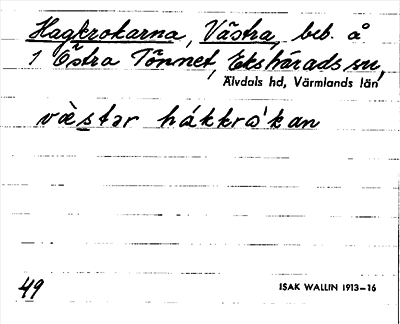 Hagkrokarna, Västra, beb. å
1 Östra Tönnet, Ekshärads sn,
Älvdals hd, Värmlands län
væ̀stər hákkrò̀kan
49
ISAK WALLIN 1913–16